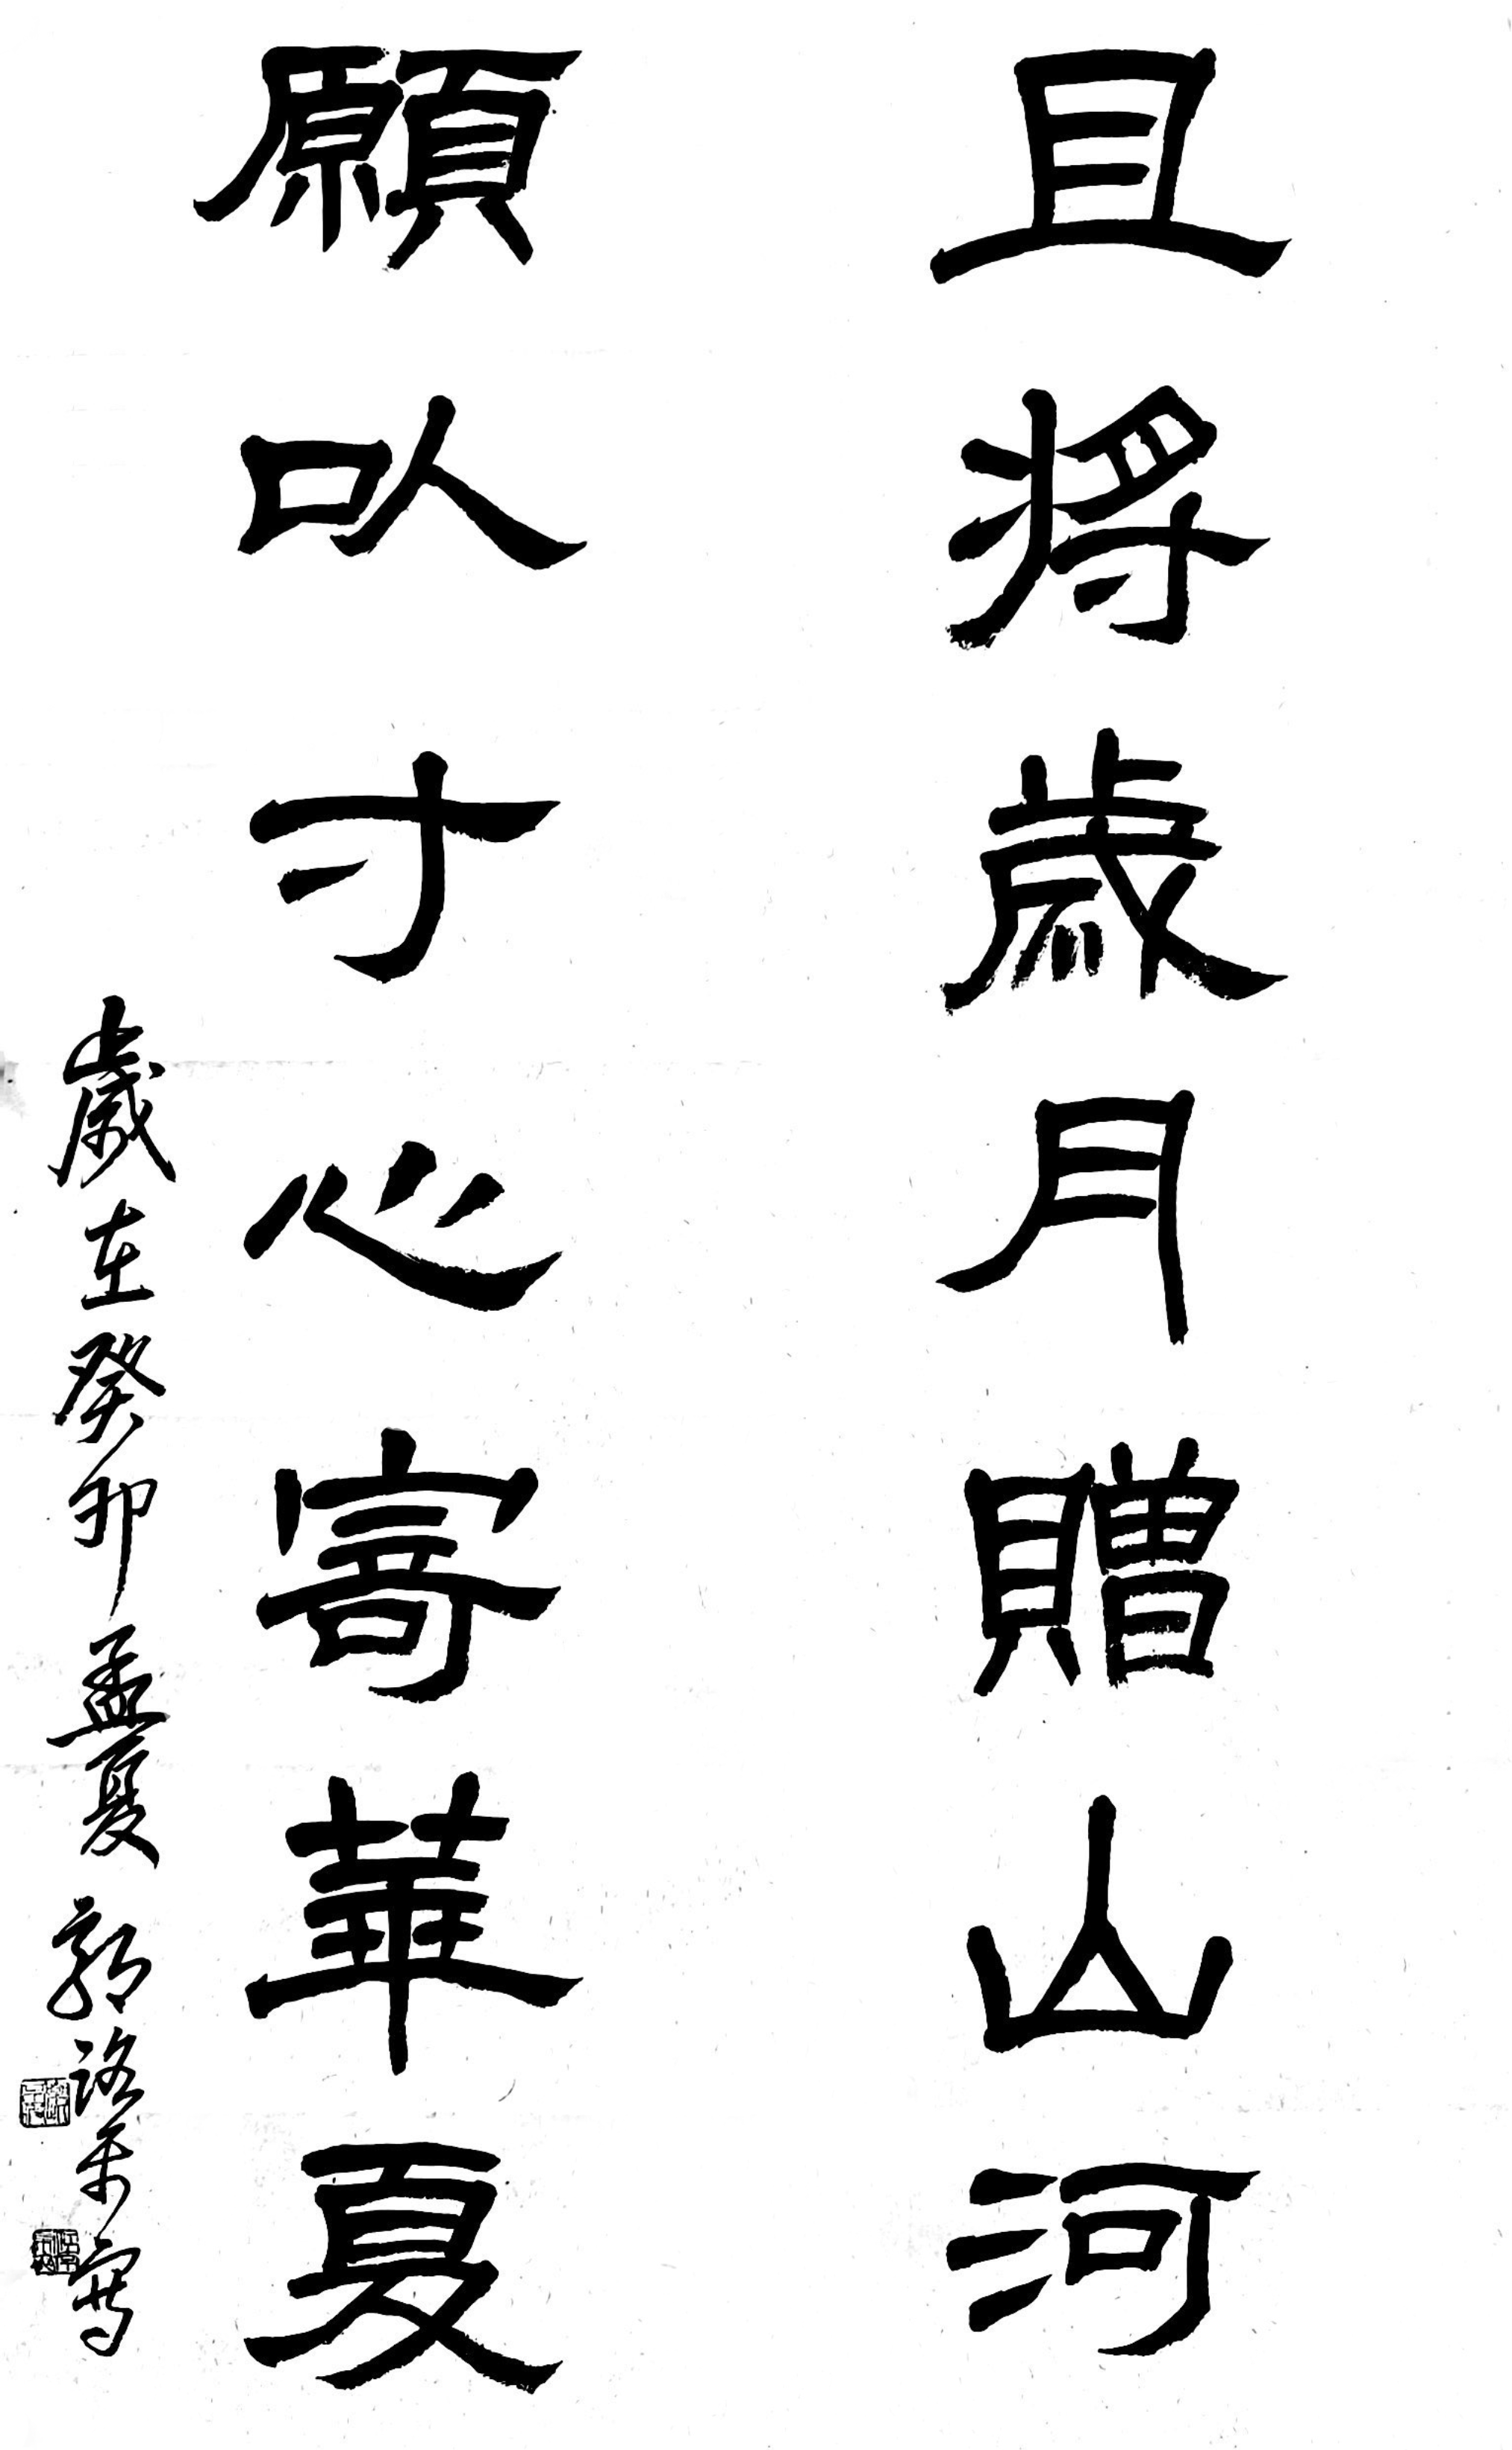 且將歲月贈山河
願以寸心寄華夏
歲在癸卯孟夏郭